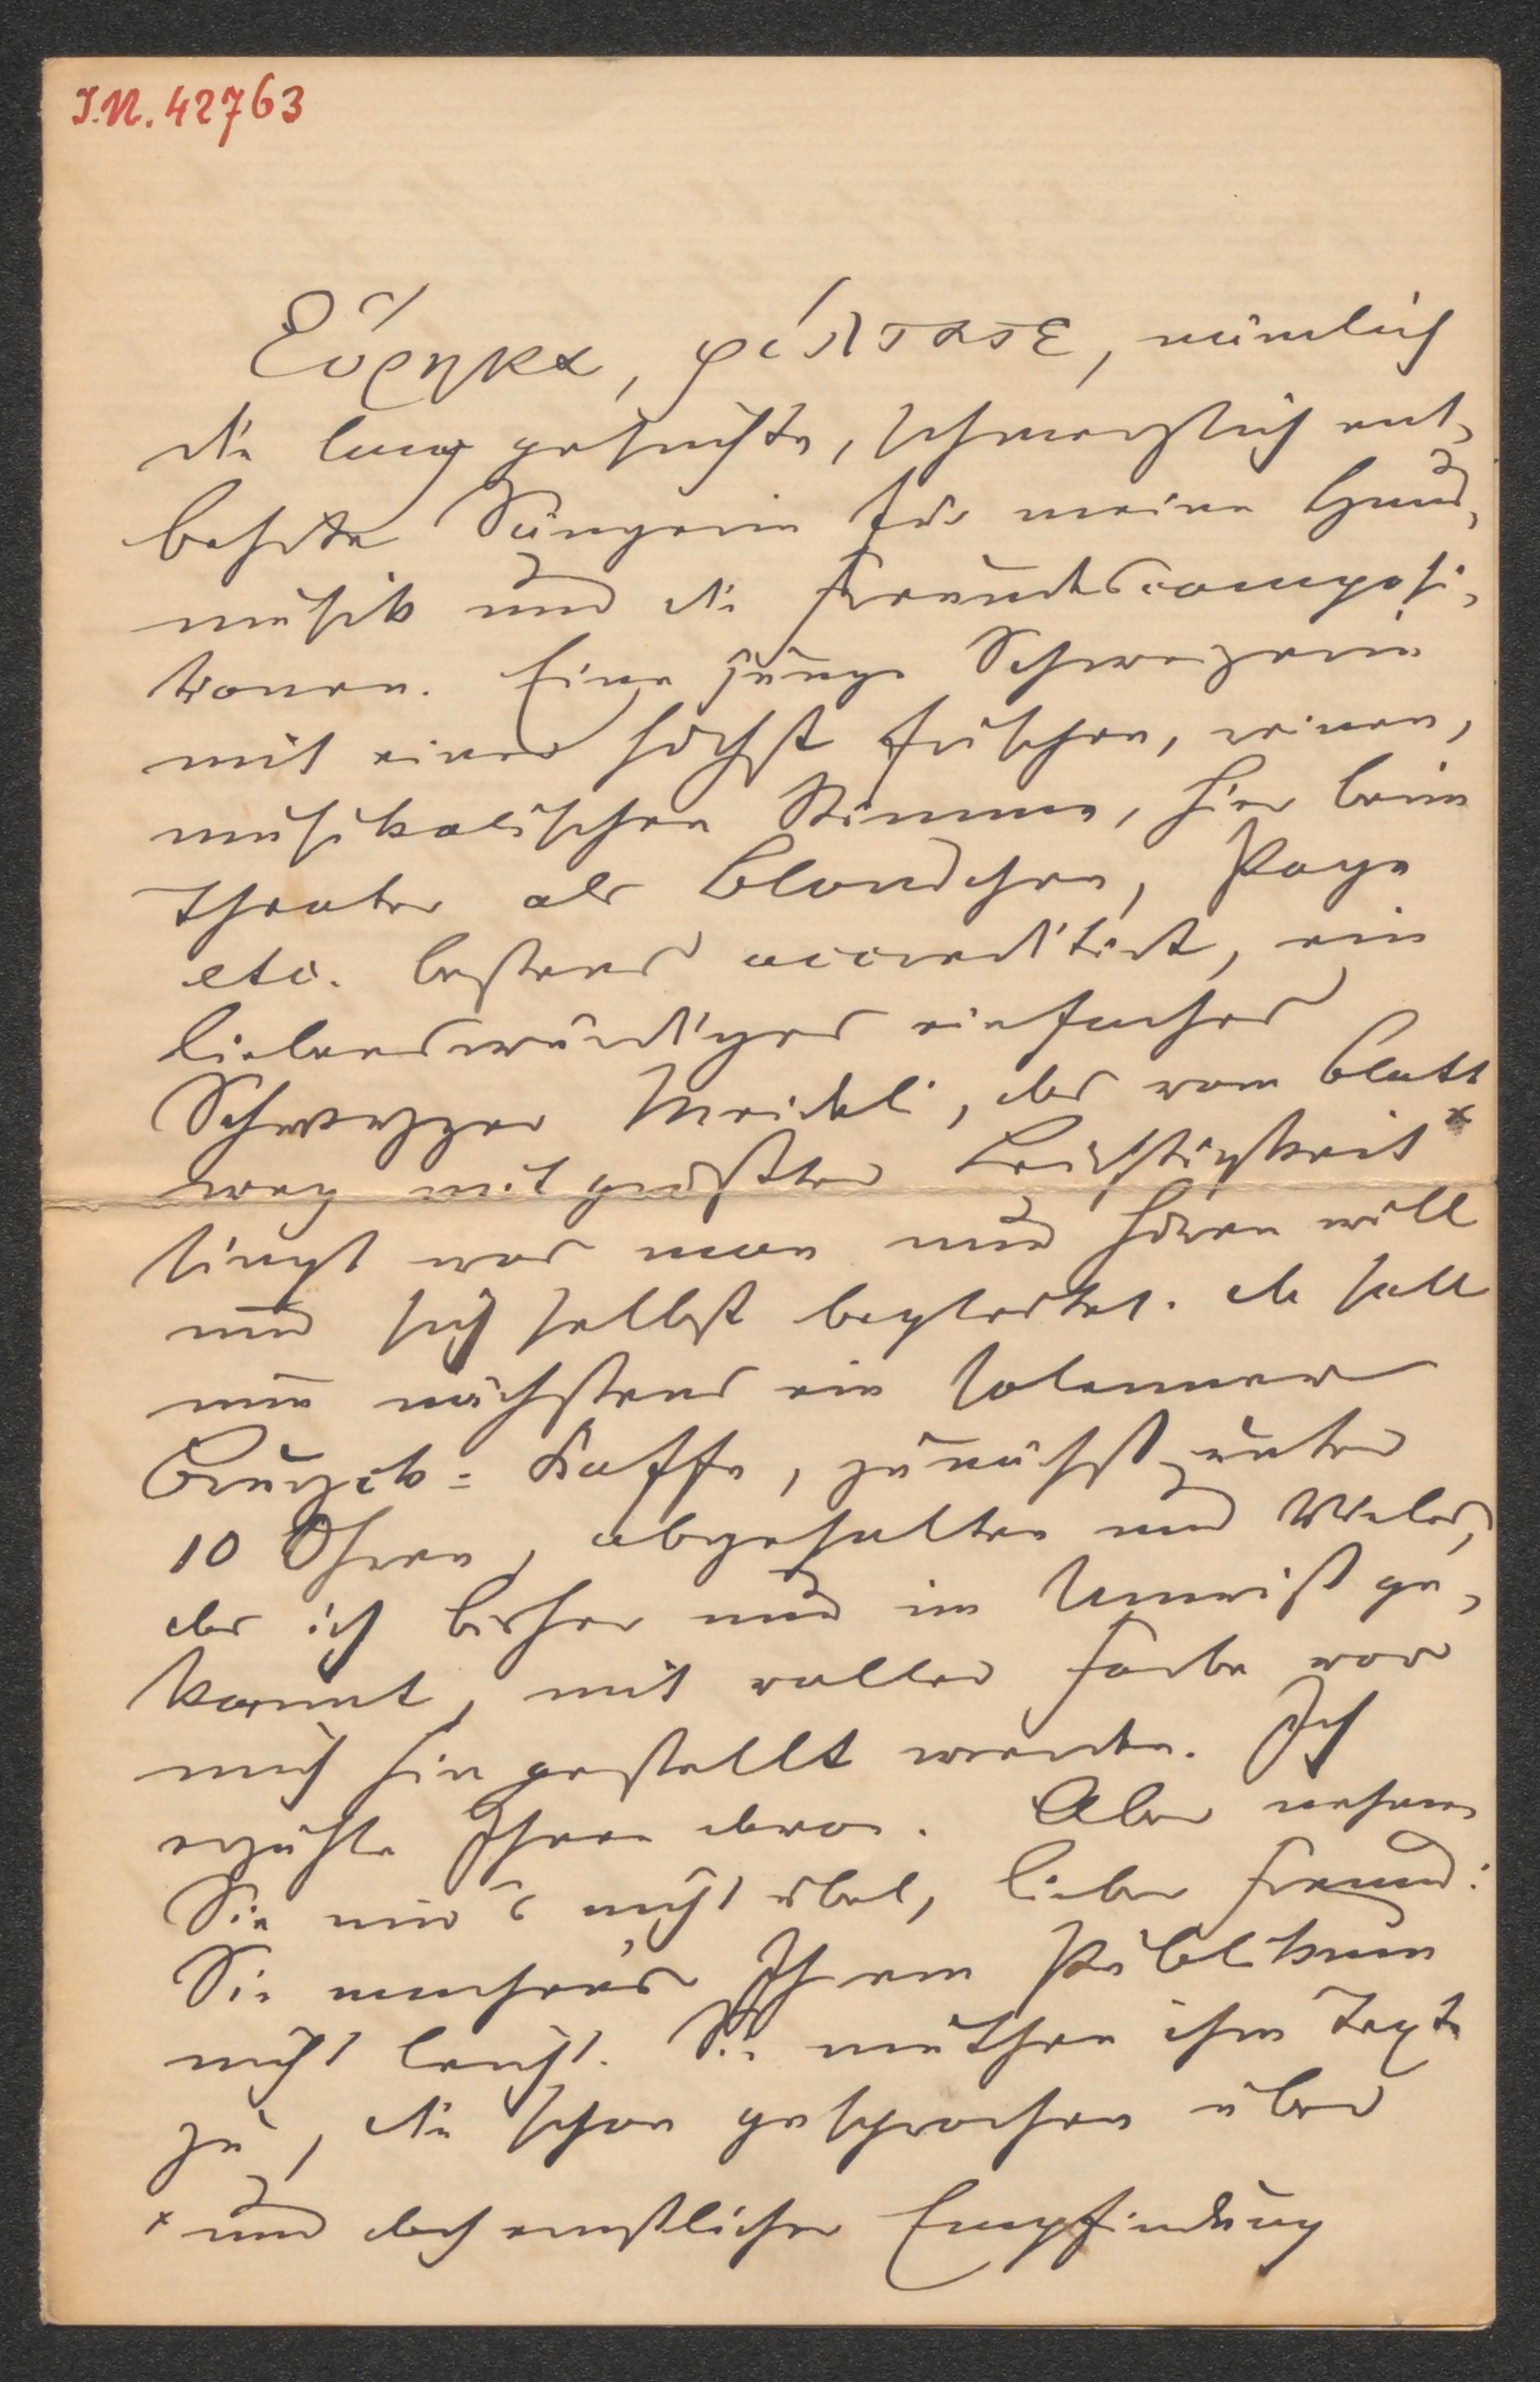 I.N. 42763
Εὕρηκα, φίλτατε, nämlich
die lang gesuchte, schmerzlich ent-
behrte Sängerin für meine Haus-
musik und die Freundescomposi-
tionen. Eine junge Schweizerin
mit einer höchst frischen, reinen,
musikalischen Stimme, hier beim
Theater als Blondchen, Page
etc. bestens accreditirt, ein
liebenswürdiges einfaches
Schwyzer Meideli, das vom Blatt
weg mit größter Leichtigkeit*
singt was man nur hören will
und sich selbst begleitet. Da soll
nun nächstens ein solenner
Kaffe, zunächst unter
10 Ohren, abgehalten und Vieles,
das ich bisher nur im Umriß ge-
kannt, mit voller Farbe vor
mich hingestellt werden. Ich
erzähle Ihnen davon. Aber nehmen
Sie mir's nicht übel, lieber Freund:
Sie machen's Ihrem Publikum
nicht leicht. Sie muthen ihm Texte
zu, die schon gesprochen über
* und doch ernstlicher Empfindung